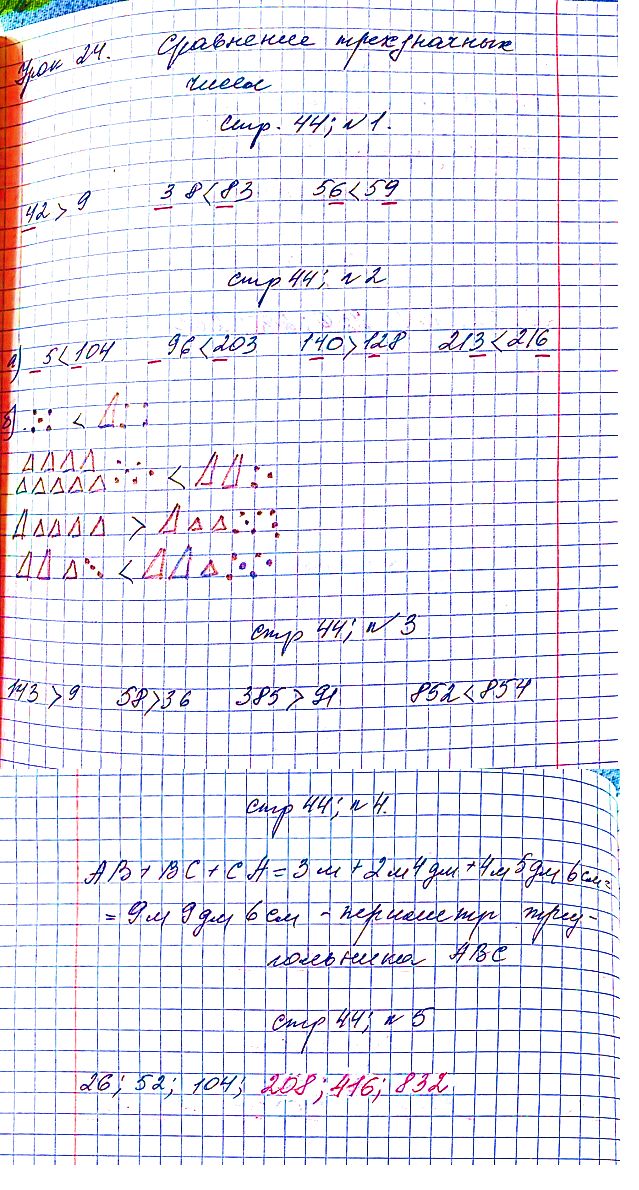 Урок 24. Сравнение трехзначных
чисел
стр. 44; №1.
42 > 9 38 < 83 56 < 59
стр 44; №2
а) 5 < 104 96 < 203 140 > 128 213 < 216
б) <
<
>
<
стр 44; №3
143 > 9 58 > 36 385 > 91 852 < 854
стр 44; №4.
AB + BC + CA = 3 м + 2 м 4 дм + 4 м 5 дм 6 см =
= 9 м 9 дм 6 см - периметр треу-
гольника ABC
стр 44; №5
26; 52; 104; 208; 416; 832